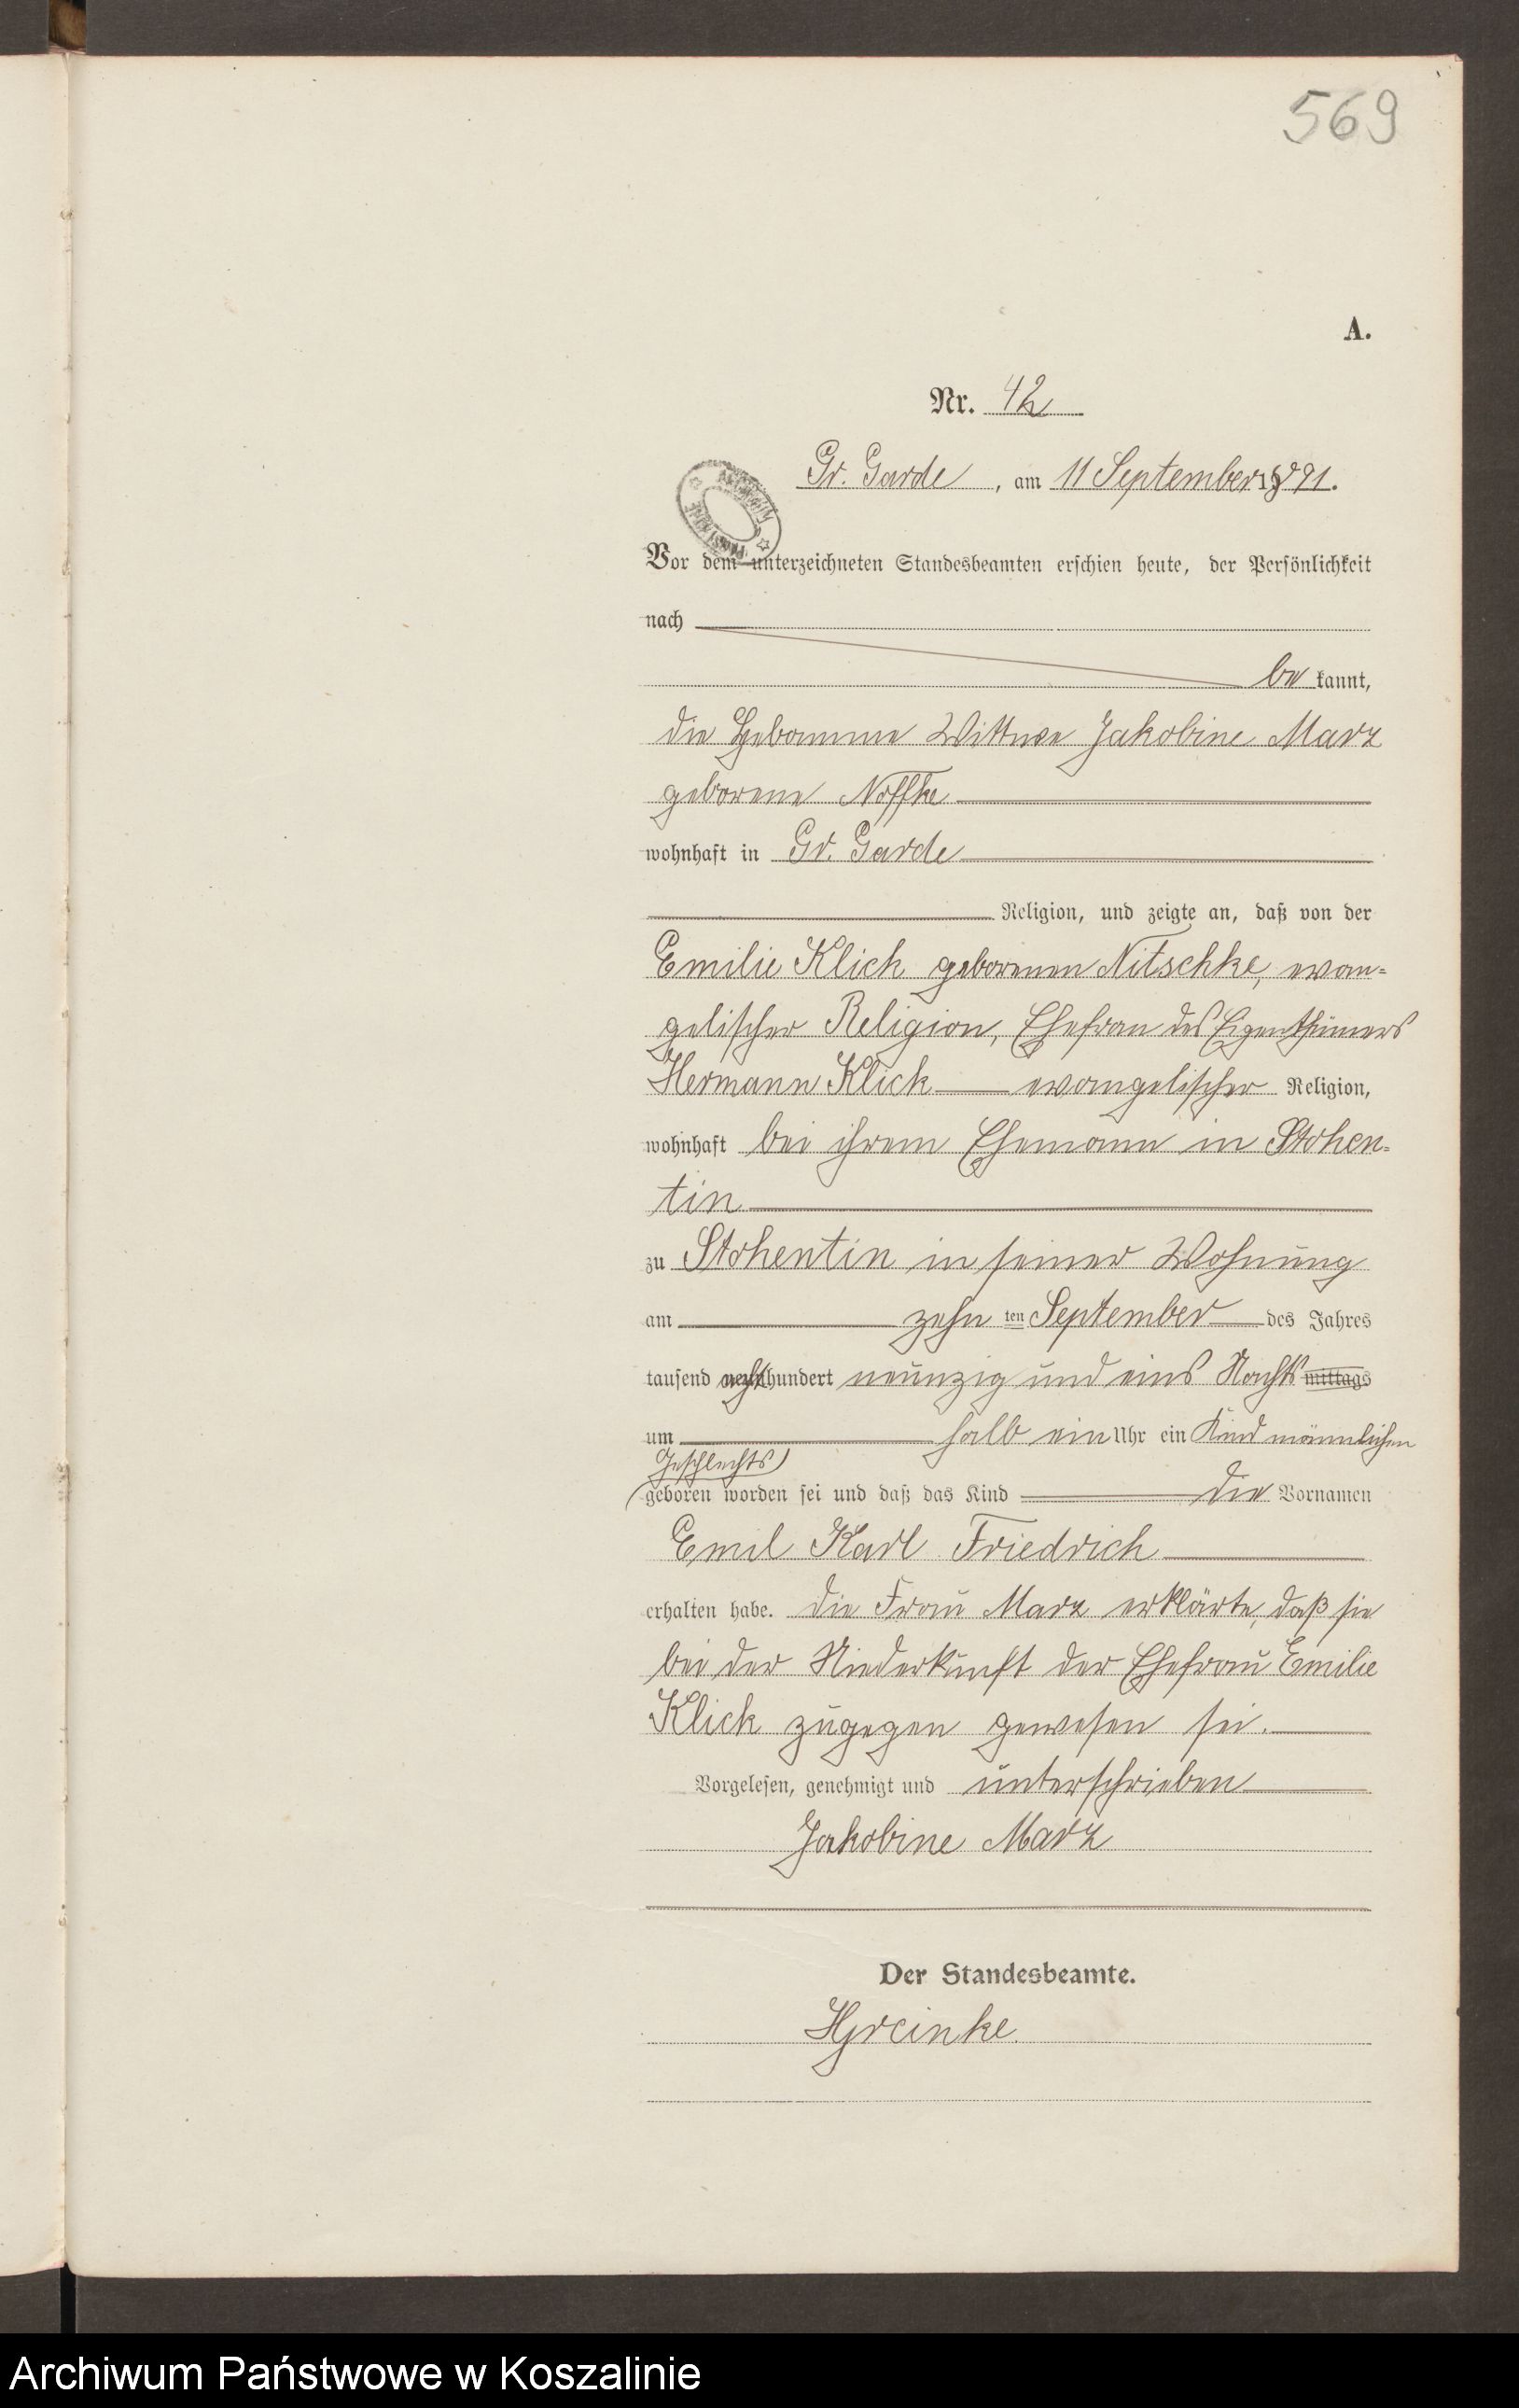 569
A.
Nr. 42
Gr. Garde, am 11 September 1891.
Vor dem unterzeichneten Standesbeamten erschien heute, der Persönlichkeit
nach
bekannt,
die Hebamme Wittwe Jakobine Marz
geborene Noffke
wohnhaft in Gr. Garde
Religion, und zeigte an, daß von der
Emilie Klick geborenen Nitschke, evan-
gelischer Religion, Ehefrau des Eigenthümers
Hermann Klick evangelischer Religion,
wohnhaft bei ihrem Ehemann in Stohen-
tin
zu Stohentin in seiner Wohnung
am zehn ten September des Jahres
tausend achthundert neunzig und eins Nachts mittags
um halb ein Uhr ein Kind männlichen
Geschlechts
geboren worden sei und daß das Kind die Vornamen
Emil Karl Friedrich
erhalten habe. Die Frau Marz erklärte, daß sie
bei der Niederkunft der Ehefrau Emilie
Klick zugegen gewesen sei.
Vorgelesen, genehmigt und unterschrieben
Jakobine Marz
Der Standesbeamte.
Archiwum Państwowe w Koszalinie